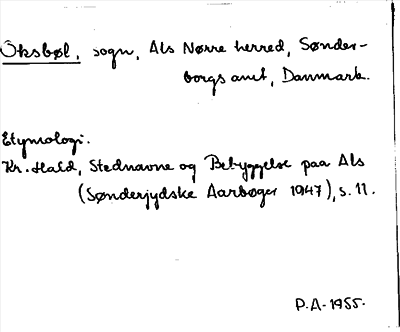 Oksbøl, sogn, Als Nørre herred, Sønder-
borgs amt, Danmark.
Etymologi.
Kr. Hald, Stednavne og Bebyggelse paa Als
(Sønderjydske Aarbøger 1947), s. 11.
P.A-1955.